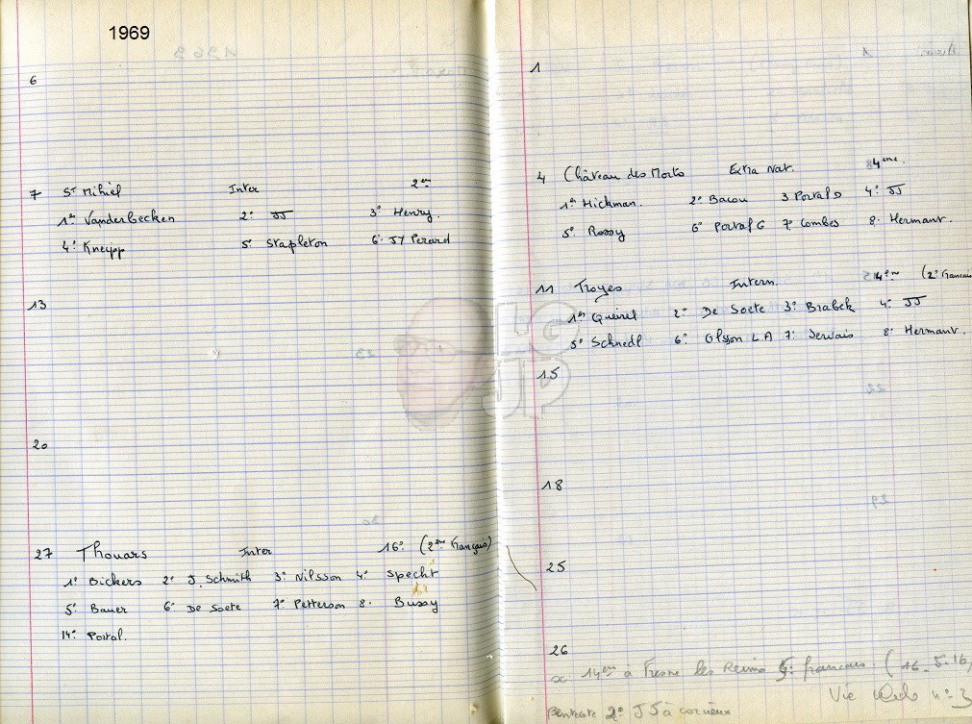 1969
6
7 St Mihiel Inter 2em
1er Vanderbecken 2e JJ 3e Henry.
4e Kneypp 5e Stapleton 6e JY Perard
13
20
27 Thouars Inter 16e (2eme Français)
1e Bickers 2e J. Schmith 3e Nilsson 4e Specht
5e Bauer 6e De Soete 7e Petterson 8e Bussy
14e Portal.
1
4 Château des Morts Extra Nat. 4eme.
1er Hickman. 2e Bacou 3 Portal D 4e JJ
5e Rossy 6e Portal G 7e Combes 8e Hermant.
11 Troyes Intern. 4eme (2e Français
1er Quirel 2e De Soete 3e Brabek 4e JJ
5e Schnedl 6e Olsson L A 7e Servais 8e Hermant.
15
18
25
26
14em à Fresne les Reims 5e français. (16.5.16)
Vie n°3
2e JJ à